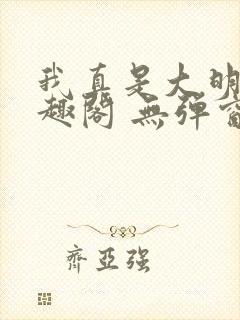 我真是大明
趣阁 無弹窗
齊亞强